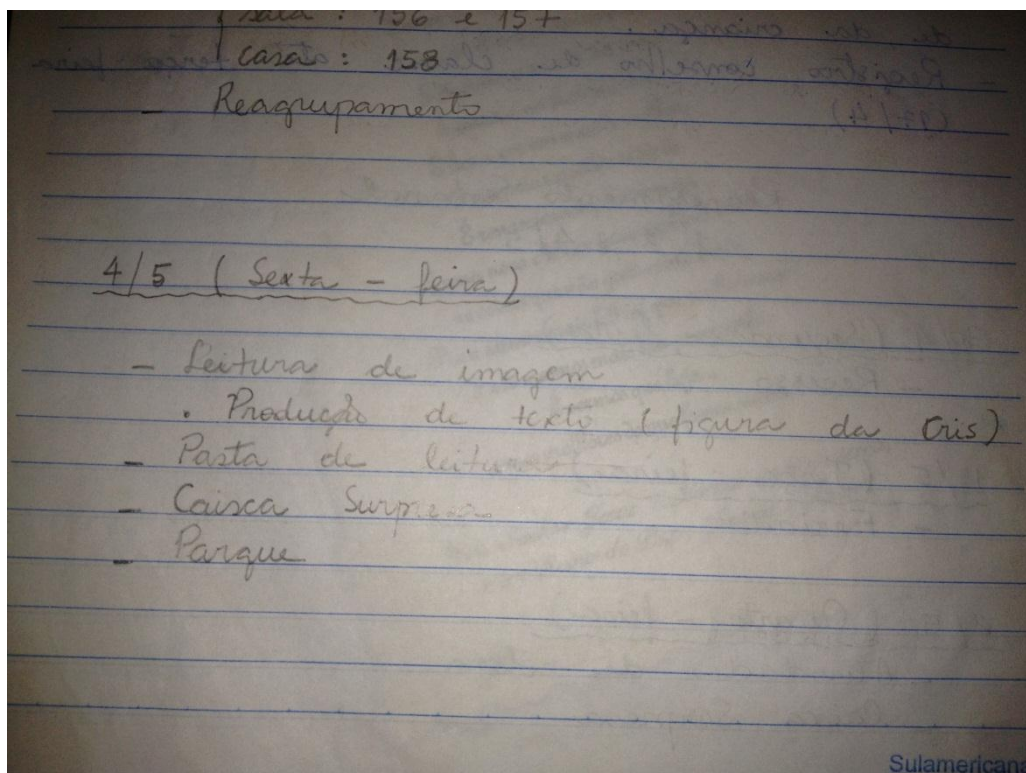 sala : 156 e 157
casa : 158
- Reagrupamento
4/5 (Sexta - feira)
- Leitura de imagem
. Produção de texto (figura da Cris)
- Pasta de leitura
- Caixa Surpresa
- Parque
Sulamericana